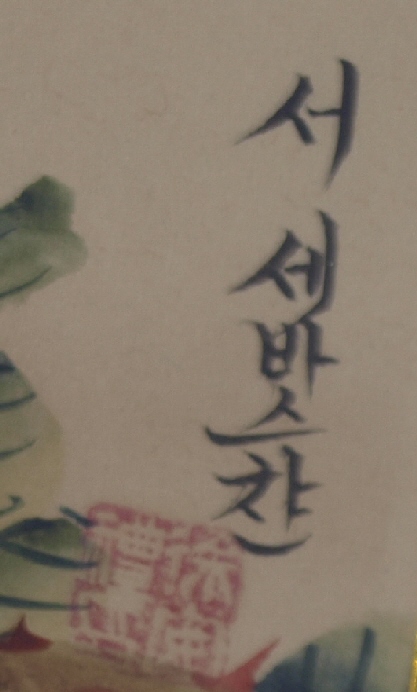 서 세바스챤